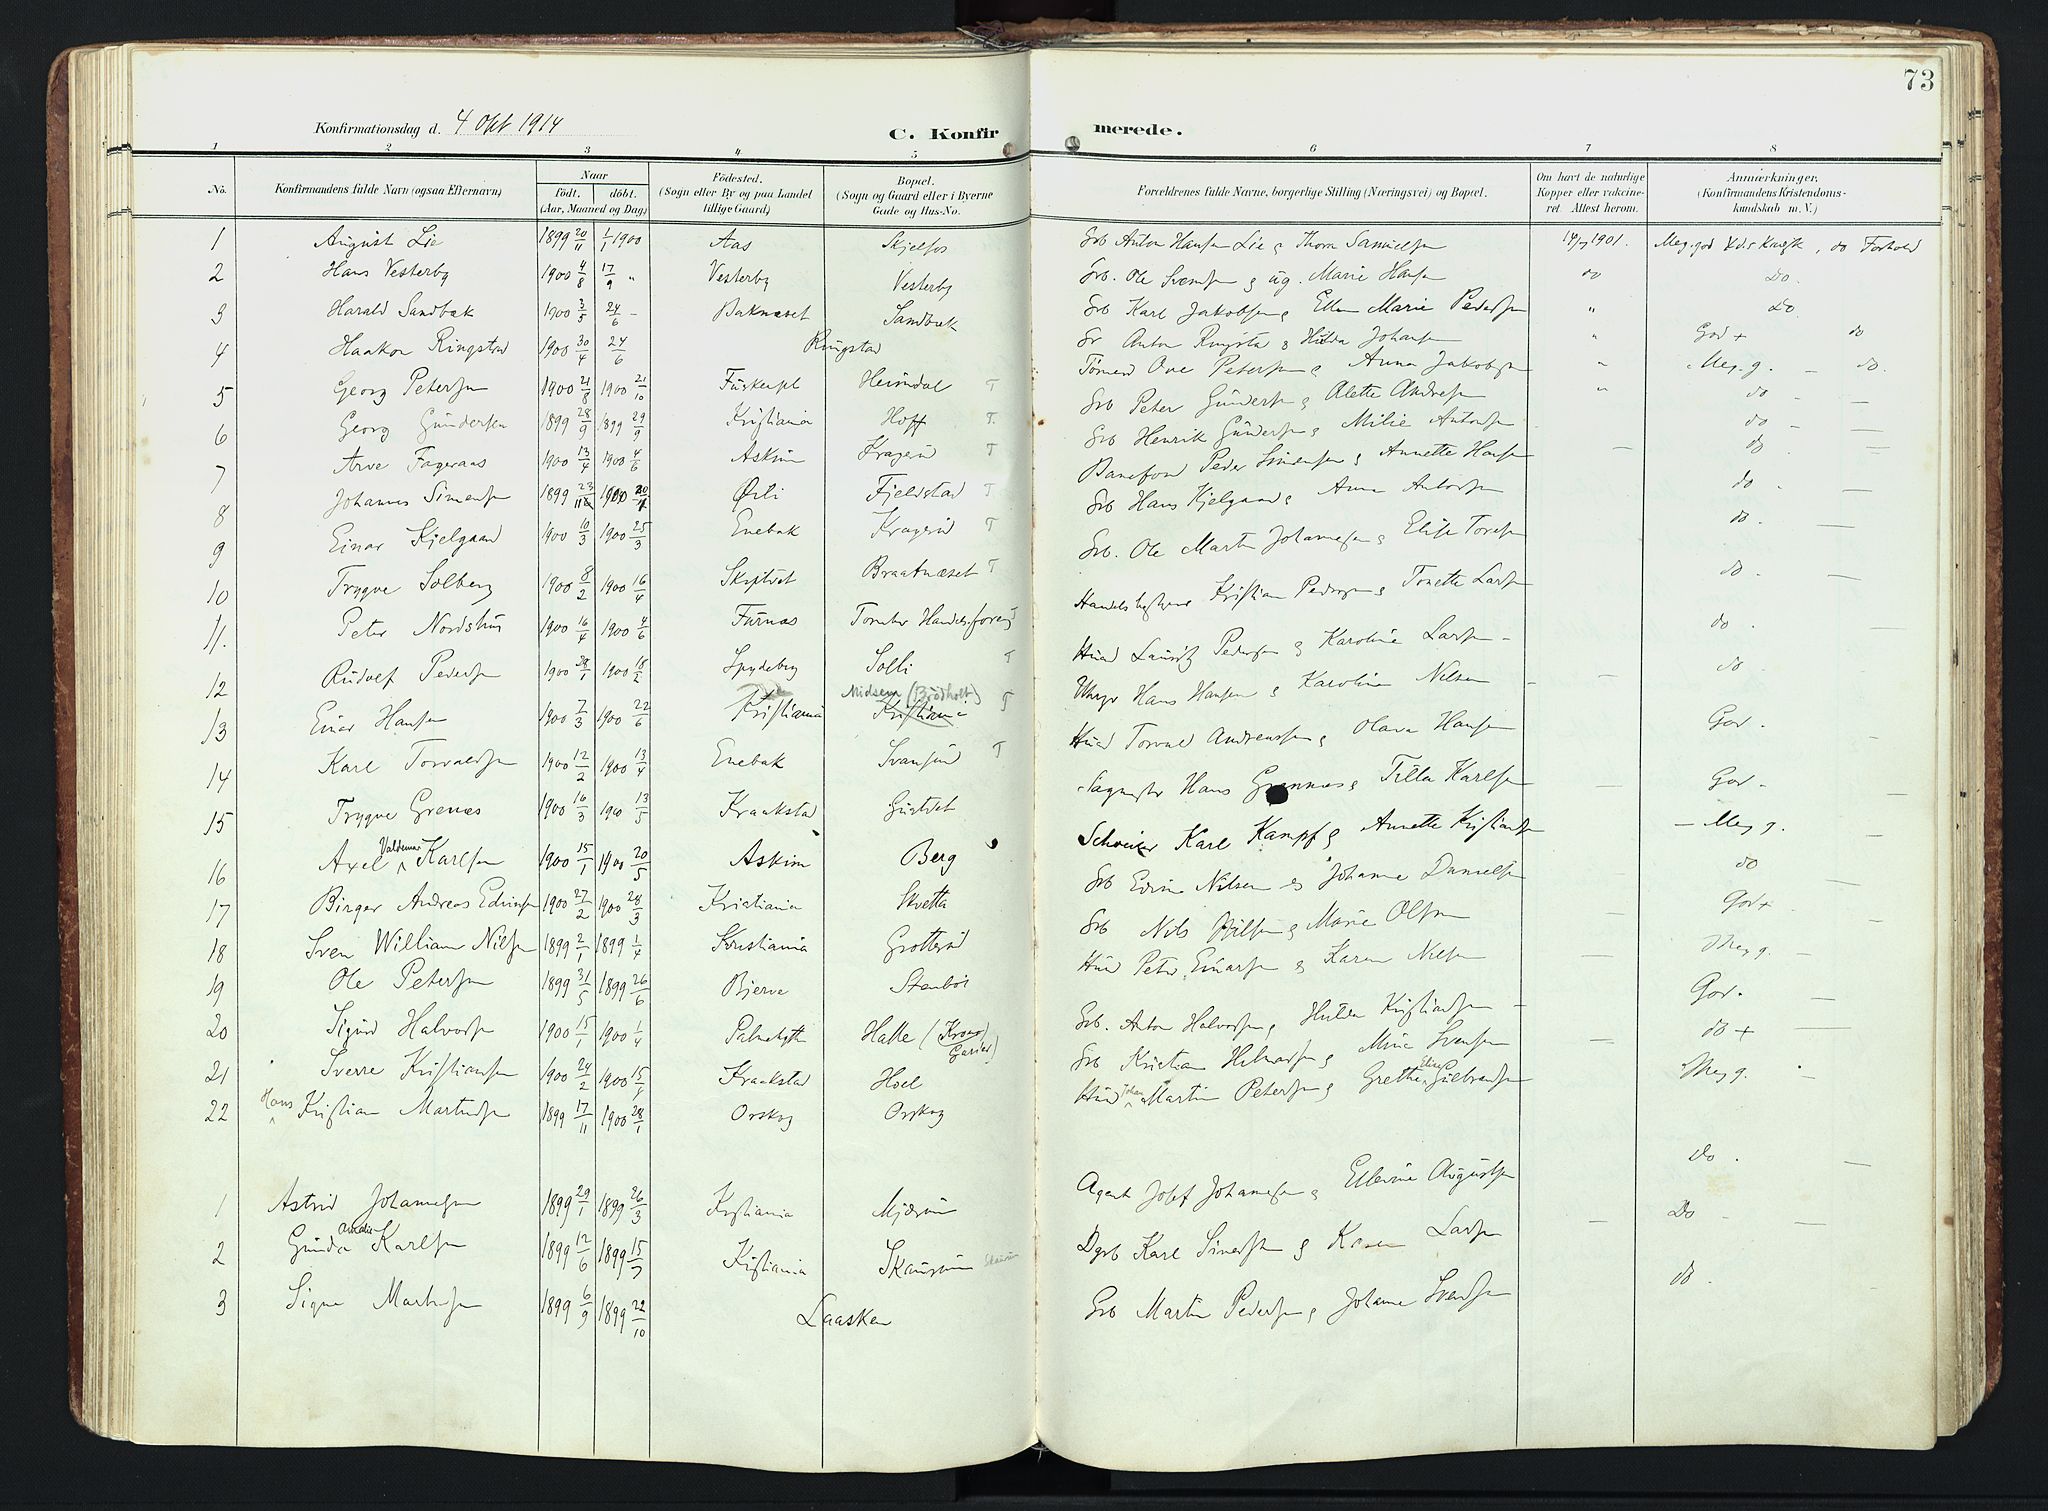 73
Konfirmationsdag d. 4 Okt 1914
C. Konfir merede.
1 2 3 4 5 6 7 8
No. Konfirmandens fulde Navn (ogsaa Efternavn) Naar födt. döbt. (Aar, Maaned og Dag) Födested. (Sogn eller By og paa Landet tillige Gaard) Bopæl. (Sogn og Gaard eller i Byerne Gade og Hus-No. Forældrenes fulde Navne, borgerlige Stilling (Næringsvei) og Bopæl. Om havt de naturlige Kopper eller vaccineret. Attest herom. Anmærkninger. (Konfirmandens Kristendomskundskab m. V.)
1 August Lie 1899 20/11 1/1 1900 Aas Skjelfos Grb Anton Hansen Lie & Thora Samuelsen 1901. Meg. god , do Forhold
2 Hans Vesterby 1900 4/8 17/9 " Vesterby Vesterby Grb. Ole Svendsen & ug. Marie Hansen do do
3 Harald Sandbæk 1900 3/5 24/6 - Sandbæk Grb Karl Jakobsen & Ellen Marie Pedersen " do
4 Haakon Ringstad 1900 30/4 24/6 Ringstad Anton Ringsta & Hilda Johansen " God + do
5 Georg Petersen 1900 21/8 1900 21/10 Heimdal T Ove Petersen & Anna Jakobsen " Meg. g. - do.
6 Georg Gundersen 1899 28/9 1899 29/9 Kristiania Hoff T. Grb Peter Gundersen & Alette Andresen " do - —
7 Arve Fageraas 1900 13/4 1900 4/6 Askim Kragerud T Grb Henrik Gundersen & Milie Antonsen do - —
8 Johannes Simensen 1899 23/11 1900 Fjeldstad T Peder Simensen & Annette Hansen — do —
9 Einar Kjelgaard 1900 10/3 1900 25/3 Enebak Kragerud T Grb Hans Kjelgaard & Anna Antonsen do - —
10 Trygve Solberg 1900 8/2 1900 16/4 Skiptvet Braatnæset T Grb. Ole Martin Johannesen & Elise Toresen do. —
11. Peter Nordshus 1900 16/4 1900 4/6 Furnæs Tomter Handelsforeng Handelsbestyrer Kristian Pedersen & Tonette Larsen do - —
12 Rudolf Pedersen 1900 1900 18/2 Spydeberg Solli T Huud Lauritz Pedersen & Karoline Larsen - do. —
13 Einar Hansen 1900 7/3 1900 22/6 Kristiania Kristiania Midsem (Brodholt) T Hans Hansen & Karoline Nilsen - — do —
14 Karl Torvaldsen 1900 12/2 1900 13/4 Enebak Svansrud T Torval Andreassen & Olava Hansen God. —
15 Trygve Grenæs 1900 16/3 1900 13/5 Kraakstad Hans Grønnæs & Tilla Karlsen — God. —
16 Axel Valdemar Karlsen 1900 15/1 1900 20/5 Askim Berg Schweizer Karl Kampf & Annette Kristiansen — Meg g. —
17 Birger Andreas Edvinsen 1900 27/2 1900 28/3 Kristiania Skvetta Grb Edvin Nilsen & Johanne Danielsen do —
18 Sven William Nilsen 1899 2/1 1899 1/4 Kristiania Grotterud Grb Nils Nilsen & Marie Olsen — God + —
19 Ole Petersen 1899 31/5 1899 26/6 Bjerve Stenbøl Peter Einarsen & Karen Nilsen — Meg g. -
20 Sigurd Halvorsen 1900 15/1 1900 1/4 Halle Grb. Anton Halvorsen & Hulda Kristiansen - God. —
21 Sverre Kristiansen 1900 24/2 1900 15/4 Kraakstad Hoel Grb Kristian Hilmarsen & Mina Svensen — do + —
22 Hans Kristian Martinsen 1899 17/11 1900 28/1 Orskog Orskog Johan Martin Petersen & Grethe Eline Gulbrandsen Meg g.
1 Astrid Johannesen 1899 29/1 1899 26/3 Kristiania Mjærum Agent Josef Johannesen & Ellevine Augustsen do. —
2 Gunda Amalie Karlsen 1899 12/6 1899 15/7 Kristiania Skausrud Karl Simensen & Karen Larsen — Do - —
3 Signe Martinsen 1899 6/9 1899 22/10 Laasken Grb Martin Pedersen & Johanne Svendsen do.